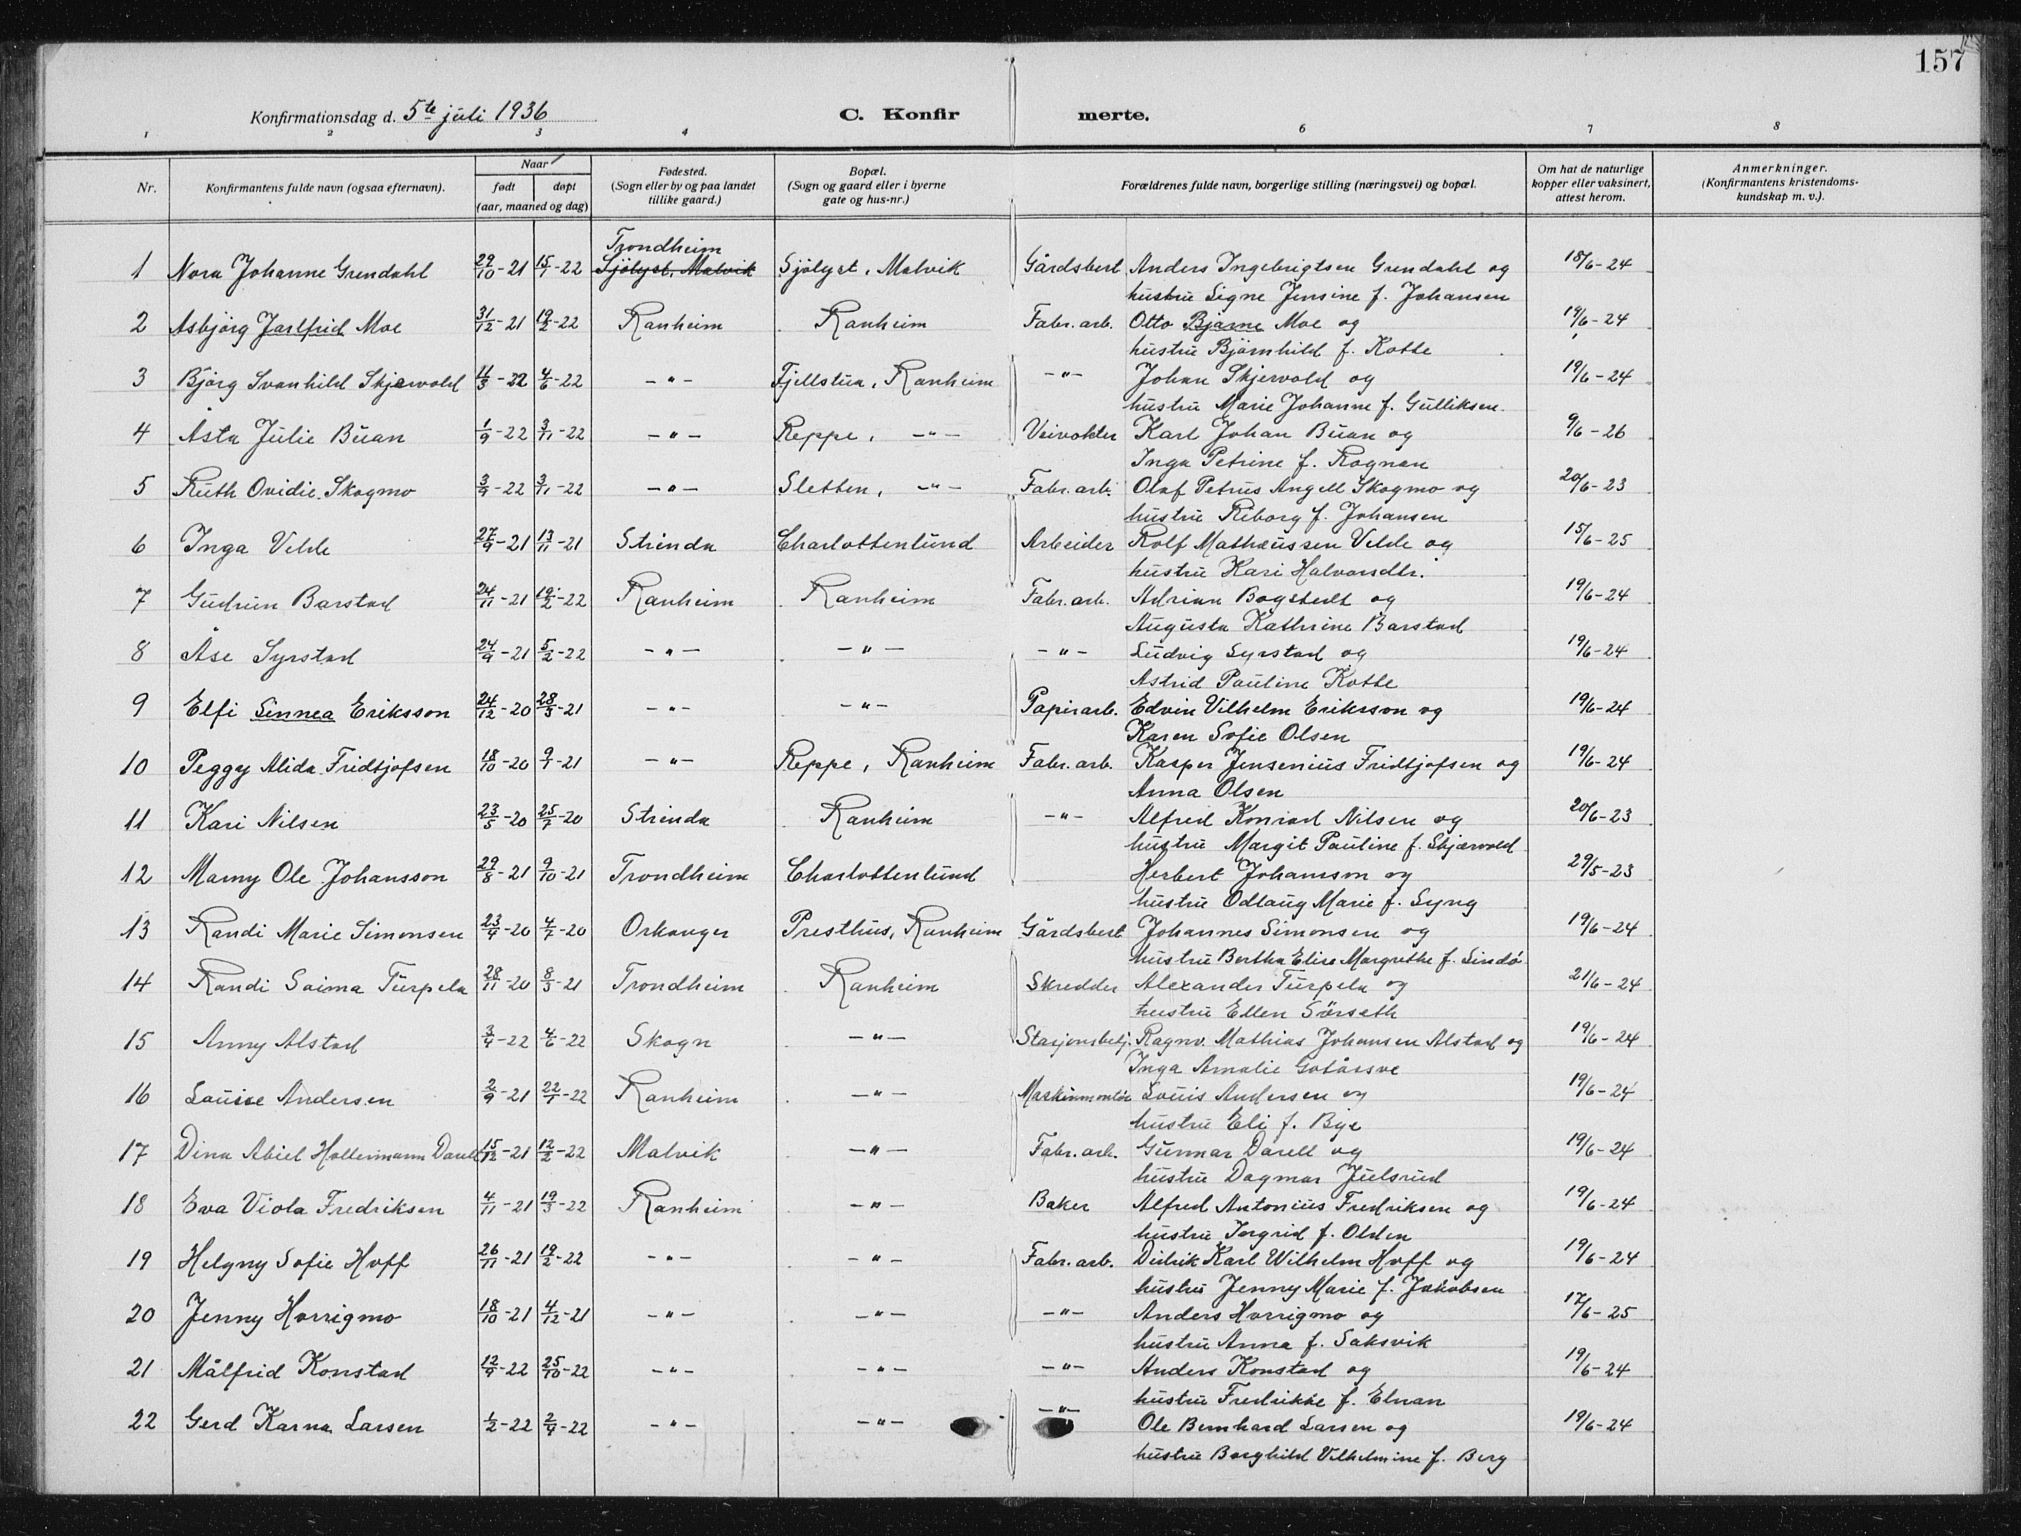 157
Konfirmationsdag d. 5te juli 1936 C. Konfir merte.
1 2 3 4 6 7 8
Nr. Konfirmantens fulde navn (ogsaa efternavn). Naar født døpt (aar, maaned og dag) Fødested. (Sogn eller by og paa landet tillike gaard.) Bopæl. (Sogn og gaard eller i byerne gate og hus-nr.) Forældrenes fulde navn, borgerlige stilling (næringsvei) og bopæl. Om hat de naturlige kopper eller vaksinert, attest herom. Anmerkninger. (Konfirmantens kristendoms-kundskap m. v.).
Trondheim
1 Nora Johanne Grendahl 29/10-21 15/1-22 Sjölyst, Malvik Sjölyst, Malvik Gårdsbest Anders Ingebrigtsen Grendahl og 18/6-24
hustru Signe Jensine f. Johansen
2 Asbjörg Jarlfrid Moe 31/12-21 19/2-22 Ranheim Ranheim Fabr. arb. Otto Bjarne Moe og 19/6-24
hustru Björnhild f. Kotte
3 Björg Svanhild Skjervold 11/3-22 4/6-22 -"- Fjellstua, Ranheim -"- Johan Skjervold og 19/6-24
hustru Marie Johanne f. Gulliksen.
4 Åsta Julie Buan 1/9-22 3/11-22 -"- Reppe, -"- Veivokter Karl Johan Buan og 9/6-26
Inga Petrine f. Rognan
5 Ruth Ovidie Skogmo 3/9-22 3/11-22 -"- Sletten, -"- Fabr. arb. Olaf Petrus Angell Skogmo og 20/6-23
hustru Riborg f. Johansen
6 Inga Velde 27/9-21 13/11-21 Strinda Charlottenlund Arbeider Rolf Mathæussen Velde og 15/6-25
hustru Kari Halvorsdtr.
7 Gudrun Barstad 24/11-21 19/2-22 Ranheim Ranheim Fabr. arb. Adrian Bogstedt og 19/6-24
Augusta Kathrine Barstad
8 Åse Syrstad 24/9-21 5/2-22 -"- -"- -"- Ludvig Syrstad og 19/6-24
Astrid Pauline Kotte
9 Elfi Linnea Eriksson 24/12-20 28/3-21 -"- -"- Papirarb. Edvin Vilhelm Eriksson og 19/6-24
Karen Sofie Olsen
10 Peggy Alida Fridtjofsen 18/10-20 9/1-21 -"- Reppe, Ranheim Fabr. arb. Kasper Jensenius Fridtjofsen og 19/6-24
Anna Olsen
11 Kari Nilsen 23/5-20 25/7-20 Strinda Ranheim -"- Alfred Konrad Nilsen og 20/6-23
hustru Margit Pauline f. Skjærvold
12 Marny Ole Johansson 29/8-21 9/10-21 Trondheim Charlottenlund Herbert Johansson og 29/5-23
hustru Odlaug Marie f. Lyng
13 Randi Marie Simonsen 23/4-20 4/7-20 Orkanger Presthus, Ranheim Gårdsbest Johannes Simonsen og 19/6-24
hustru Bertha Elise Margrethe f. Lindö
14 Randi Saima Turpela 28/11-20 8/3-21 Trondheim Ranheim Skredder Alexander Turpela og 21/6-24
hustru Ellen Sörseth
15 Anny Alstad 3/4-22 4/6-22 Skogn -"- Stasjonsbetj. Ragnv. Mathias Johansen Alstad og 19/6-24
Inga Amalie
16 Louise Andersen 2/9-21 22/1-22 Ranheim -"- Maskinmontör Louis Andersen og 19/6-24
hustru Eli f. Bye
17 Dina Abiel Holtermann Darell 15/12-21 12/2-22 Malvik -"- Fabr. arb. Gunnar Darell og 19/6-24
hustru Dagmar Julsrud
18 Eva Viola Fredriksen 4/11-21 19/3-22 Ranheim -"- Baker Alfred Antonius Fredriksen og 19/6-24
hustru Ingrid f. Olden
19 Helgny Sofie Hoff 26/11-21 19/2-22 -"- -"- Fabr. arb. Didrik Karl Wilhelm Hoff og 19/6-24
hustru Jenny Marie f. Jakobsen
20 Jenny Horrigmo 18/10-21 4/12-21 -"- -"- -"- Anders Horrigmo og 17/6-25
hustru Anna f. Saksvik
21 Målfrid Konstad 12/9-22 25/10-22 -"- -"- -"- Anders Konstad og 19/6-24
hustru Fredrikke f. Elnan
22 Gerd Karna Larsen 1/2-22 2/4-22 -"- -"- -"- Ole Bernhard Larsen og 19/6-24
hustru Borghild Vilhelmine f. Berg